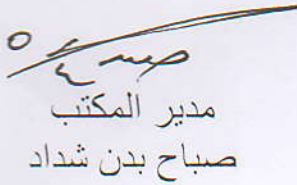 مدير المكتب
صباح بدن شداد